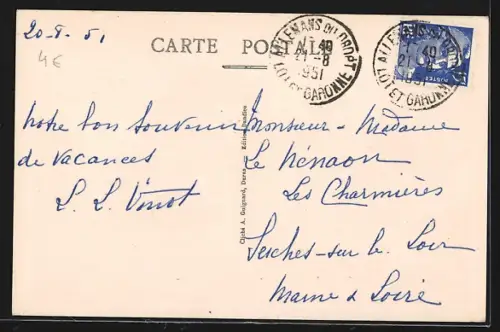 20-8.51
4€
CARTE POSTALE
ALLEMANS DU DROPT
17 40
21-8
1951
LOT ET GARONNE
ALLEMANS DU DROPT
40
21-8
1951
LOT ET GARONNE
Notre bon souvenir
de vacances
L. L. Vinot
Cliché A. Guignard, Duras. — Édition
Monsieur - Madame
Le Ménaon
Les Charmières
Seiches-sur le Loir
Maine & Loire